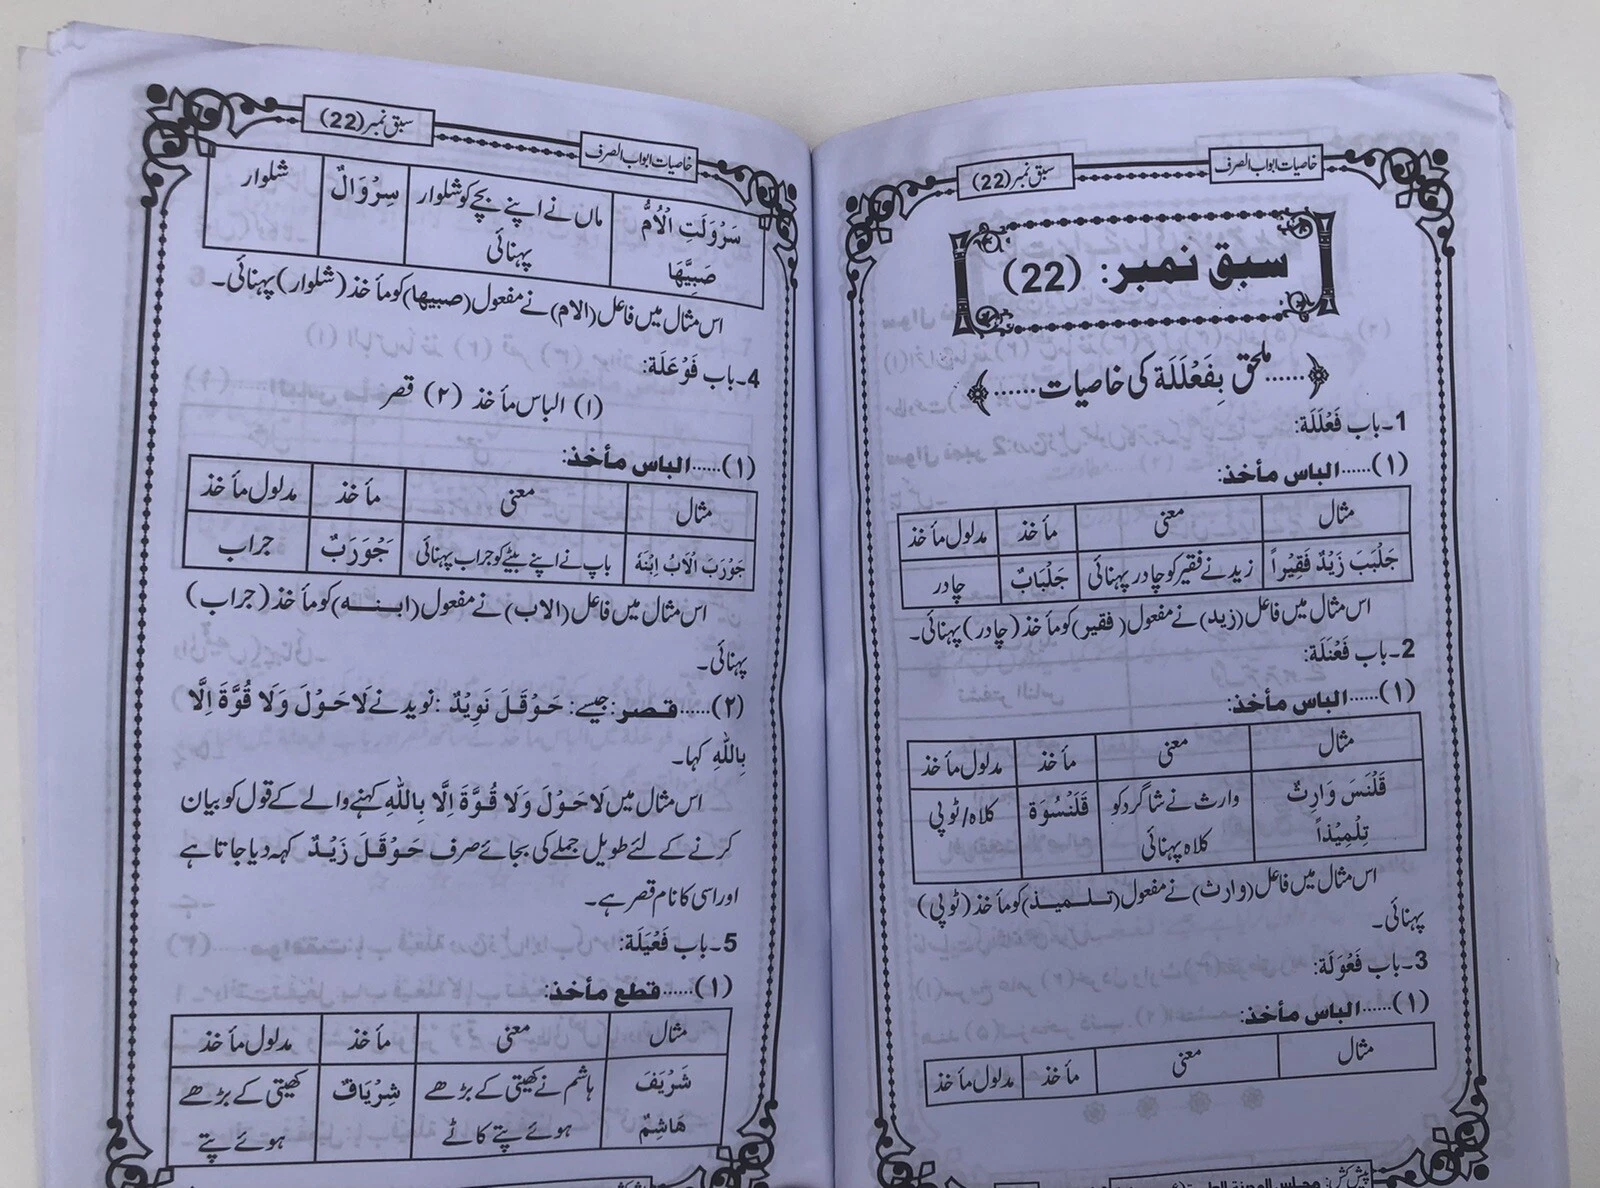 خاصیات ابواب الصرف
سبق نمبر (22)
سبق نمبر: (22)
......ملحق بِفَعْلَلَة کی خاصیات......
1۔باب فَعْلَلَة:
(۱)......الباس مأخذ:
مثال معنی مأخذ مدلول مأخذ
جَلْبَبَ زَيْدٌ فَقِيْراً زید نے فقیر کو چادر پہنائی جَلْبَابٌ چادر
اس مثال میں فاعل (زید) نے مفعول (فقیر) کو مأخذ (چادر) پہنائی۔
2۔باب فَعْنَلَة:
(۱)......الباس مأخذ:
مثال معنی مأخذ مدلول مأخذ
قَلْنَسَ وَارِثٌ وارث نے شاگرد کو قَلَنْسُوَة کلاہ/ٹوپی
تِلْمِيْذاً کلاہ پہنائی
اس مثال میں فاعل (وارث) نے مفعول (تلمیذ) کو مأخذ (ٹوپی)
پہنائی۔
3۔باب فَعْوَلَة:
(۱)......الباس مأخذ:
مثال معنی مأخذ مدلول مأخذ
پیش کش: مجلس المدینة العلمیة
خاصیات ابواب الصرف
سبق نمبر (22)
سَرْوَلَتِ الْاُمُّ ماں نے اپنے بچے کو شلوار سِرْوَالٌ شلوار
صَبِيَّهَا پہنائی
اس مثال میں فاعل (الام) نے مفعول (صبیها) کو مأخذ (شلوار) پہنائی۔
4۔باب فَوْعَلَة:
(۱) الباس مأخذ (۲) قصر
(۱)......الباس مأخذ:
مثال معنی مأخذ مدلول مأخذ
جَوْرَبَ الْاَبُ اِبْنَهٗ باپ نے اپنے بیٹے کو جراب پہنائی جَوْرَبٌ جراب
اس مثال میں فاعل (الاب) نے مفعول (ابنه) کو مأخذ (جراب)
پہنائی۔
(۲)......قصر: جیسے: حَوْقَلَ نَوِيْدٌ: نوید نے لَا حَوْلَ وَلَا قُوَّةَ اِلَّا
بِاللهِ کہا۔
اس مثال میں لَا حَوْلَ وَلَا قُوَّةَ اِلَّا بِاللهِ کہنے والے کے قول کو بیان
کرنے کے لئے طویل جملے کی بجائے صرف حَوْقَلَ زَيْدٌ کہہ دیا جاتا ہے
اور اسی کا نام قصر ہے۔
5۔باب فَعْيَلَة:
(۱)......قطع مأخذ:
مثال معنی مأخذ مدلول مأخذ
شَرْيَفَ ہاشم نے کھیتی کے بڑھے شِرْيَافٌ کھیتی کے بڑھے
هَاشِمٌ ہوئے پتے کاٹے ہوئے پتے